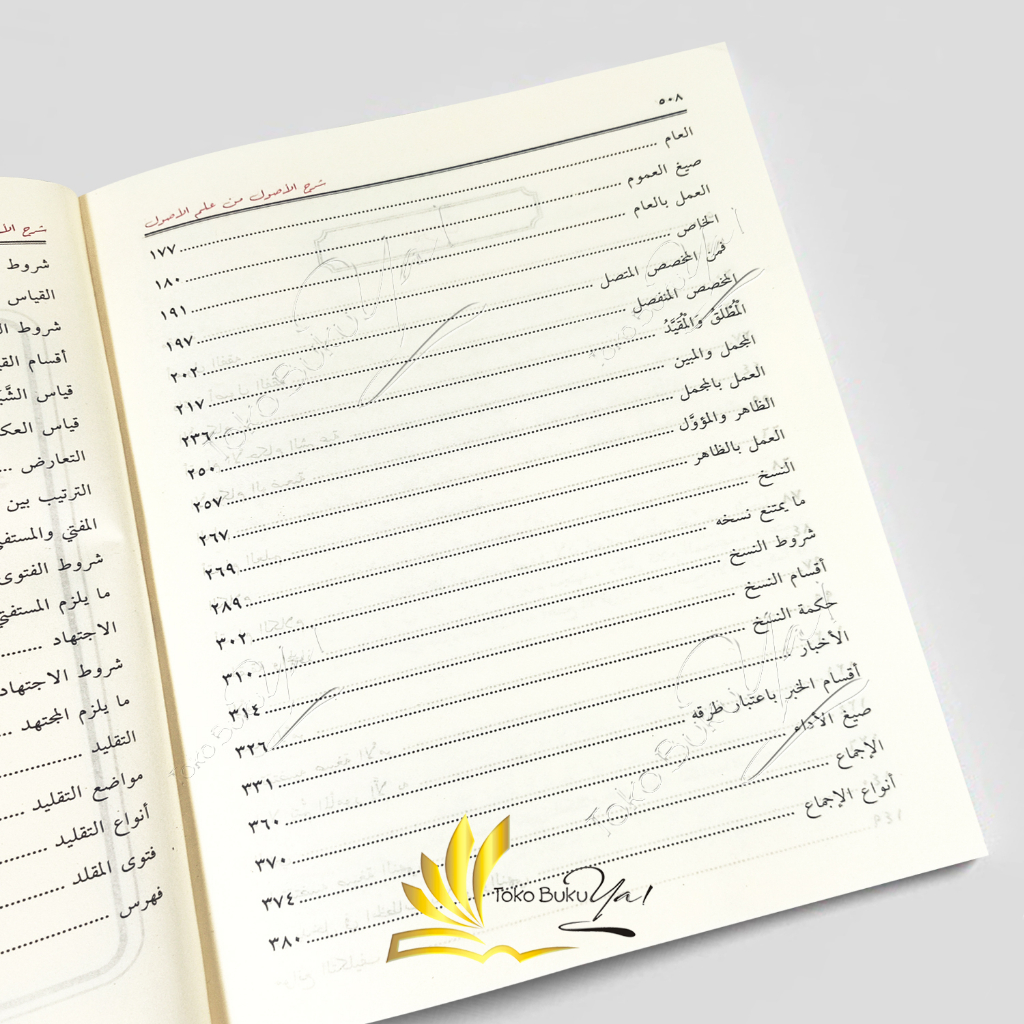 ٥٠٨
شرح الأصول من علم الأصول
العام ........ ١٧٧
صيغ العموم ........ ١٨٠
العمل بالعام ........ ١٩١
الخاص ........ ١٩٧
فمن المخصص المتصل ........ ٢٠٢
المخصص المنفصل ........ ٢١٧
الْمُطْلَقُ وَالْمُقَيَّدُ ........ ٢٣٦
المجمل والمبين ........ ٢٥٠
العمل بالمجمل ........ ٢٥٧
الظاهر والمؤوَّل ........ ٢٦٧
العمل بالظاهر ........ ٢٦٩
النسخ ........ ٢٨٩
ما يمتنع نسخه ........ ٣٠٢
شروط النسخ ........ ٣١٠
أقسام النسخ ........ ٣١٤
حكمة النسخ ........ ٣٢٦
الأخبار ........ ٣٣١
أقسام الخبر باعتبار طرقه ........ ٣٦٠
صيغ الأداء ........ ٣٧٠
الإجماع ........ ٣٧٤
أنواع الإجماع ........ ٣٨٠
شرح
شروط
القياس
شروط
أقسام
قياس
قياس
التعارض ...
الترتيب بين
المفتي
شروط الفتوى
ما يلزم
الاجتهاد ........
شروط الاجتهاد
ما يلزم المجتهد ...
التقليد ........
مواضع التقليد ....
أنواع التقليد ........
فتوى المقلد ........
فهرس ........
Toko Buku Ya!